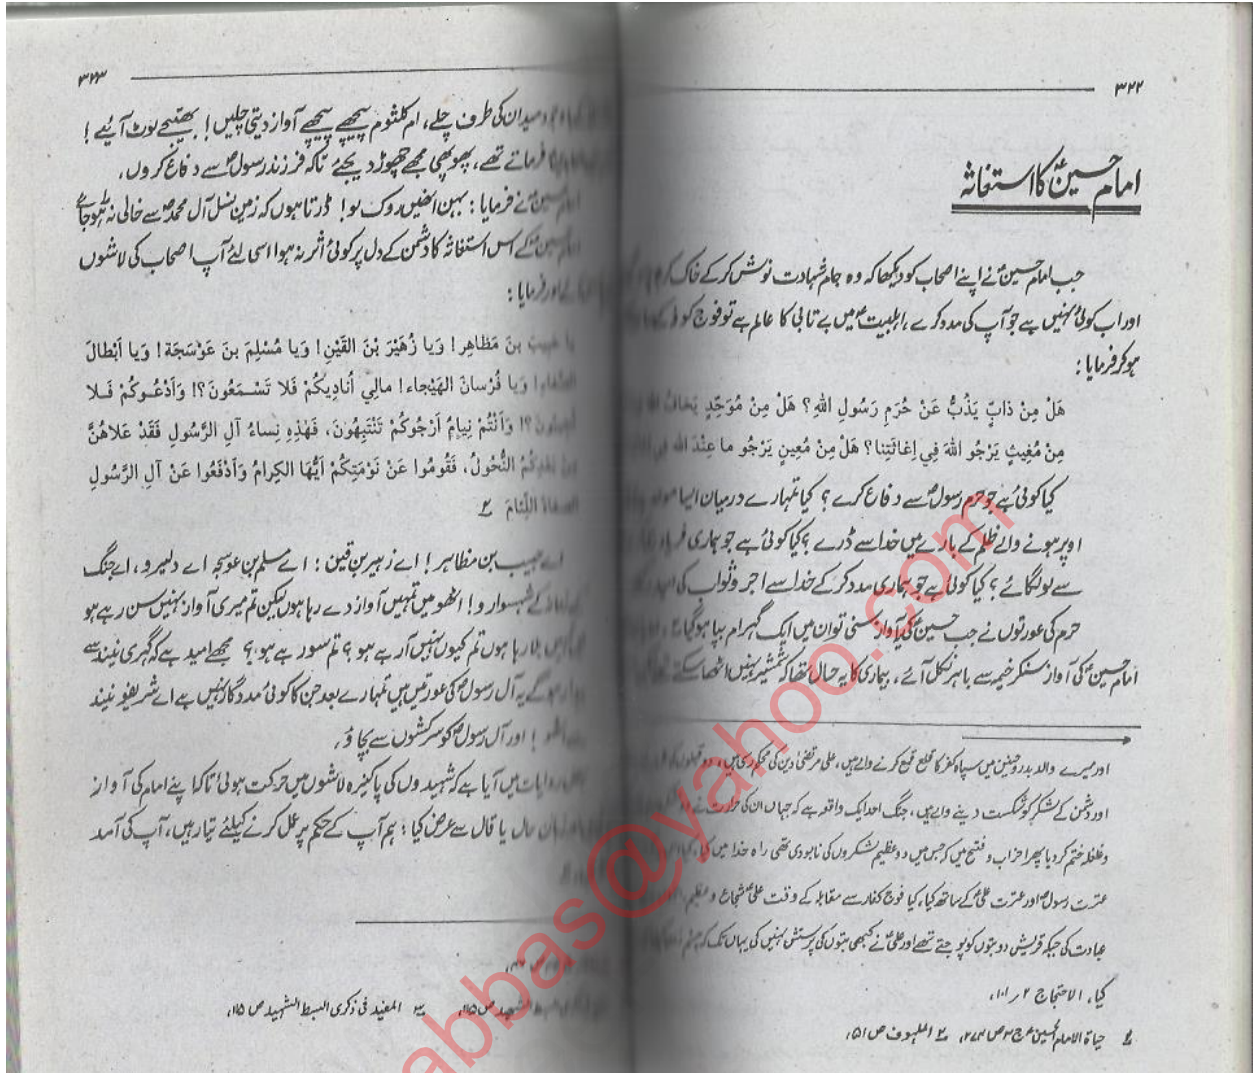 ۳۲۲
امام حسینؑ کا استغاثہ
جب امام حسینؑ نے اپنے اصحاب کو دیکھا کہ وہ جام شہادت نوش کرکے خاک
اور اب کوئی نہیں ہے جو آپ کی مدد کرے، اہلبیتؑ میں بے تابی کا عالم ہے تو فوج
ہوکر فرمایا :
هَلْ مِنْ ذابٍّ يَذُبُّ عَنْ حُرَمِ رَسُولِ اللهِ؟ هَلْ مِنْ مُوَحِّدٍ يَخافُ
مِنْ مُغِيثٍ يَرْجُو اللهَ فِي إغاثَتِنا؟ هَلْ مِنْ مُعِينٍ يَرْجُو ما عِنْدَ الله
کیا کوئی ہے جو حرم رسولؐ سے دفاع کرے؟ کیا تمہارے درمیان ایسا
اوپر ہونے والے ظلم کے بارے میں خدا سے ڈرے؟ کیا کوئی ہے جو ہماری
سے لو لگائے؟ کیا کوئی ہے جو ہماری مدد کرکے خدا سے اجر و ثواب کی
حرم کی عورتوں نے جب حسینؑ کی آواز سنی تو ان میں ایک کہرام بپا ہوگیا
امام حسینؑ کی آواز سنکر خیمہ سے باہر نکل آئے، بیماری کا یہ حال تھا کہ شمشیر نہیں اٹھا سکتے
اور میرے والد بدر و حنین میں سپاہ کفر کا قلع قمع کرنے والے ہیں، علی مرتضیٰ دین کی محکوری ہیں، دو قبلوں
اور دشمن کے لشکر کو شکست دینے والے ہیں، جنگ احد ایک واقعہ ہے کہ جہاں ان کی حرارت نے
و غلغلہ ختم کردیا پھر احزاب و فتح میں کہ جس میں دو عظیم لشکروں کی نابودی تھی راہ خدا میں کیا
عترت رسولؐ اور عترت علیؑ کے ساتھ کیا، کیا فوج کفار سے مقابلہ کے وقت علیؑ شجاع و عظیم
عبادت کی جبکہ قریش دو بتوں کو پوجتے تھے اور علیؑ نے کبھی بتوں کی پرستش نہیں کی یہاں تک کہ
کیا۔ الاحتجاج ۲؍۱۰۱۔
۱؎ حیاۃ الامام الحسینؑ ج ۳ ص ۲۷۴، ۲؎ الملہوف ص ۵۱،
۳۲۳
میدان کی طرف چلے، ام کلثوم پیچھے پیچھے آواز دیتی چلیں! بھتیجے لوٹ آئیے!
فرماتے تھے، پھوپھی مجھے چھوڑ دیجئے تاکہ فرزند رسولؐ سے دفاع کروں،
نے فرمایا : بہن انھیں روک لو! ڈرتا ہوں کہ زمین نسل آل محمدؐ سے خالی نہ ہوجائے
کے اس استغاثہ کا دشمن کے دل پر کوئی اثر نہ ہوا اسی لئے آپ اصحاب کی لاشوں
اور فرمایا :
بنَ مَظاهِر! وَيا زُهَيْرَ بْنَ القَيْنِ! وَيا مُسْلِمَ بنَ عَوْسَجَة! وَيا أبْطالَ
وَيا فُرْسانَ الهَيْجاء! مالِي أُنادِيكُمْ فَلا تَسْمَعُونَ؟! وَأدْعُوكُمْ فَلا
وَأنْتُمْ نِيامُ أرْجُوكُمْ تَنْتَبِهُونَ، فَهٰذِهِ نِساءُ آلِ الرَّسُولِ فَقَدْ عَلاهُنَّ
النُّحُولُ، فَقُومُوا عَنْ نَوْمَتِكُمْ أيُّها الكِرامُ وَأدْفَعُوا عَنْ آلِ الرَّسُولِ
اللِّئامَ ۲؎
اے حبیب بن مظاہر! اے زہیر بن قین : اے مسلم بن عوسجہ اے دلیرو، اے جنگ
کے شہسوارو! اٹھو میں تمہیں آواز دے رہا ہوں لیکن تم میری آواز نہیں سن رہے ہو
بلا رہا ہوں تم کیوں نہیں آرہے ہو؟ تم سو رہے ہو؟ مجھے امید ہے کہ گہری نیند سے
ہوگے یہ آل رسولؐ کی عورتیں ہیں تمہارے بعد جن کا کوئی مددگار نہیں ہے اے شریفو نیند
اٹھو! اور آل رسولؐ کو سرکشوں سے بچاؤ،
روایات میں آیا ہے کہ شہیدوں کی پاکیزہ لاشوں میں حرکت ہوئی تاکہ اپنے امام کی آواز
زبان حال یا قال سے عرض کیا : ہم آپ کے حکم پر عمل کرنے کیلئے تیار ہیں، آپ کی آمد
الشہید ص ۱۱۵، ۳؎ المفید فی ذکری السبط الشہید ص ۱۱۵،
abbas@yahoo.com